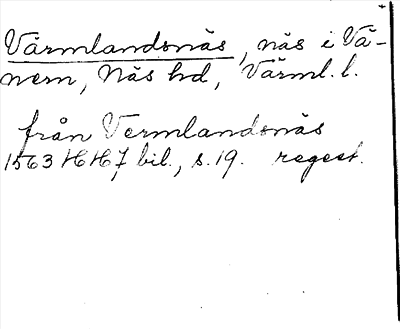 Värmlandsnäs, näs i Vä-
nern, Näs hd, Värml. l.
från Vermlandsnäs
1563 HH 7 bil., s. 19. regest.